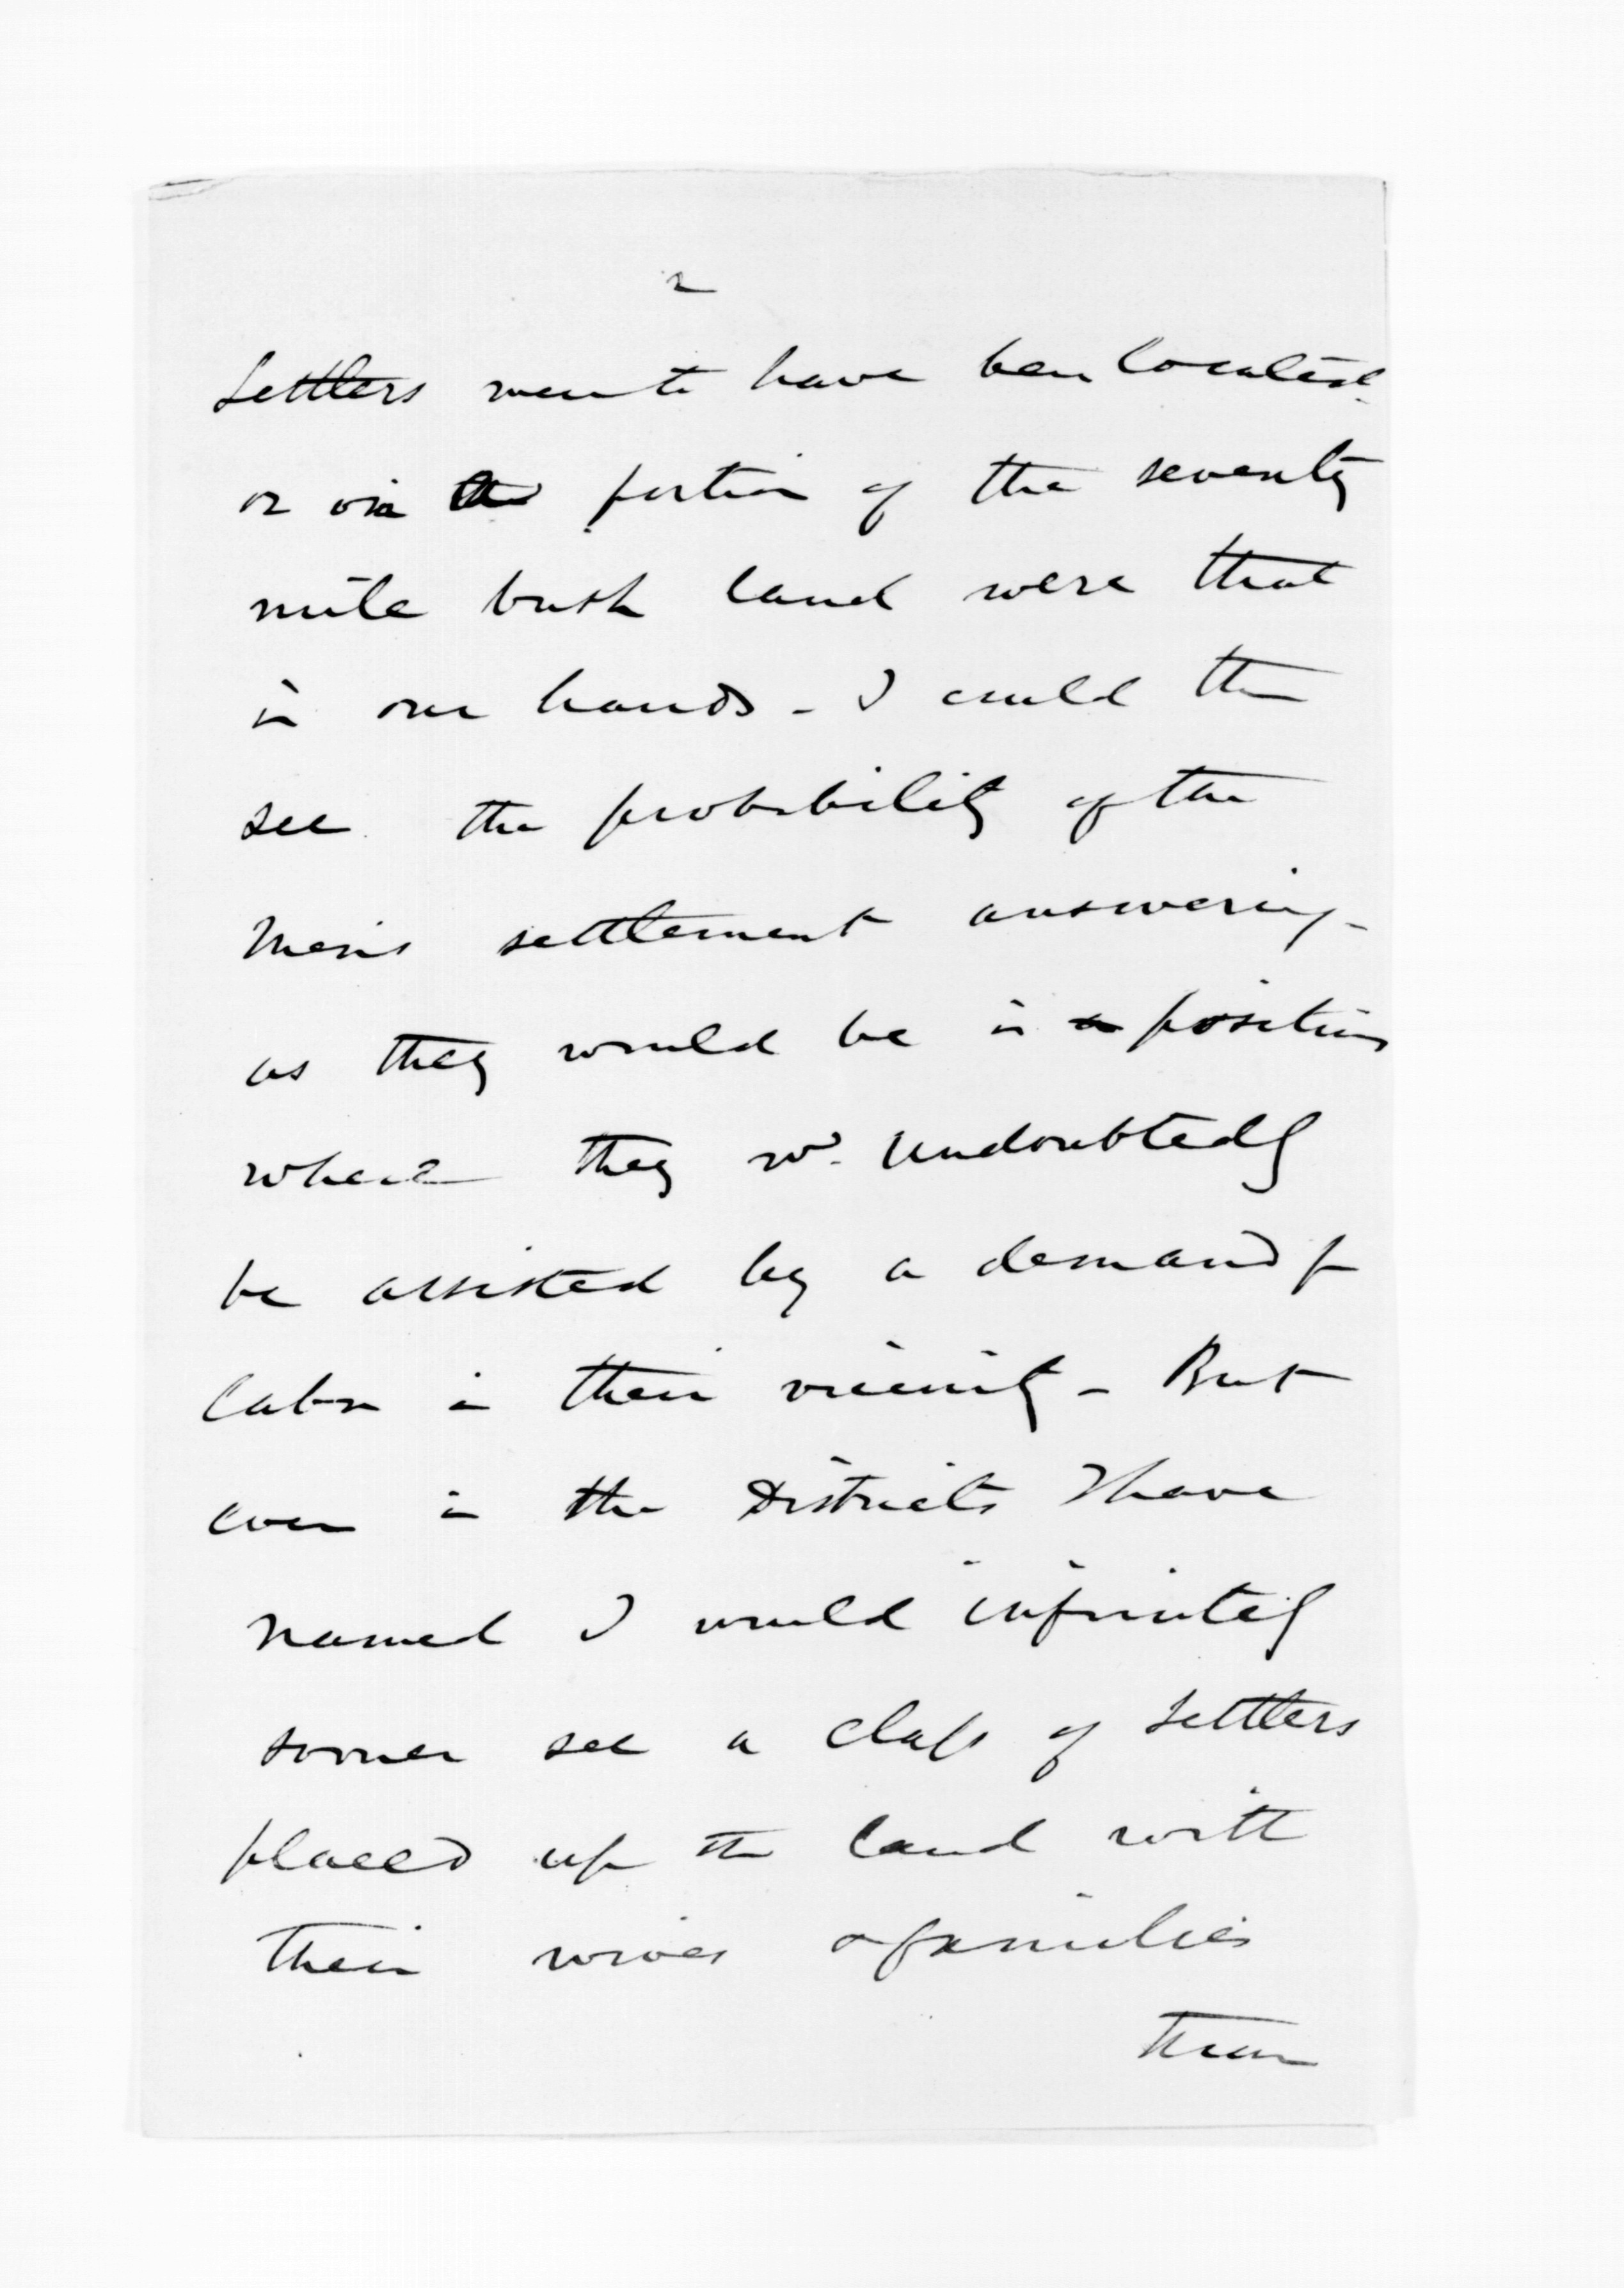 2
Settlers were to have been located
or on a portion of the seventy
mile bush land were that
in our hands - I could then
see the probability of the
Men's settlement answering -
as they would be in a position
where they wd. undoubtedly
be assisted by a demand for
labor in their vicinity - But
even in the Districts I have
named I would infinitely
sooner see a class of Settlers
placed upon the land with
their wives & families
than